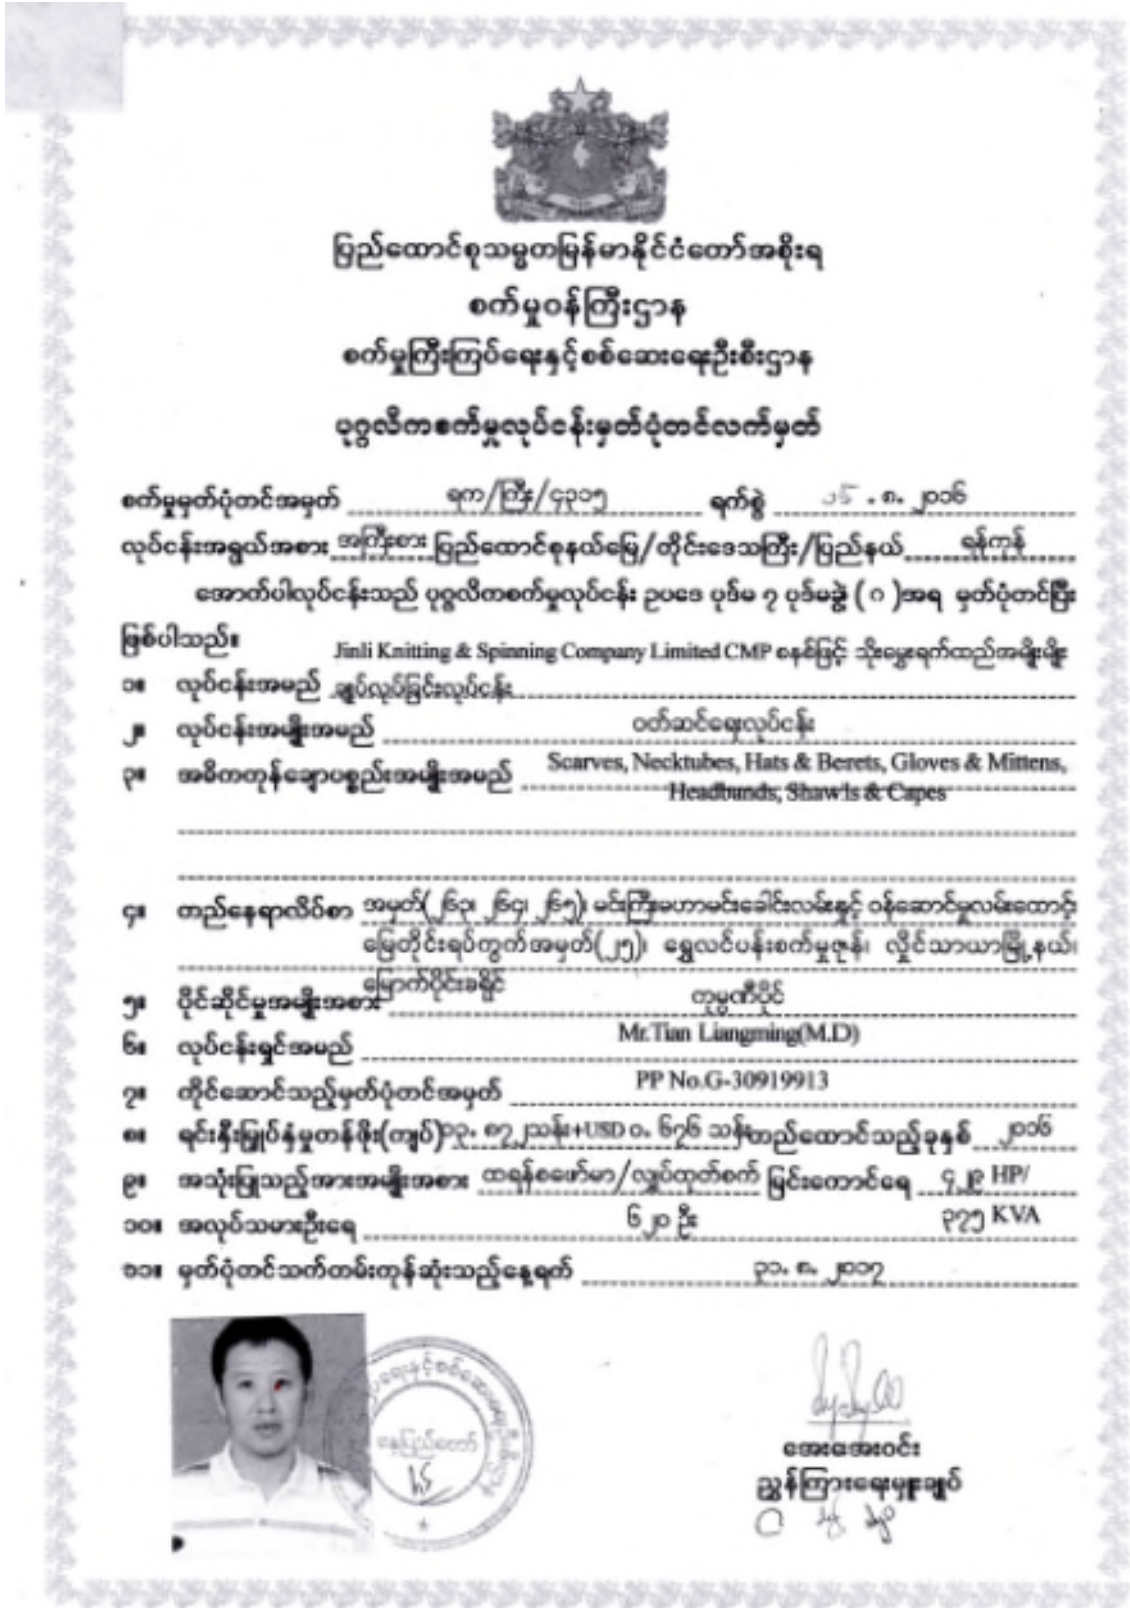 ပြည်ထောင်စုသမ္မတမြန်မာနိုင်ငံတော်အစိုးရ
စက်မှုဝန်ကြီးဌာန
စက်မှုကြီးကြပ်ရေးနှင့်စစ်ဆေးရေးဦးစီးဌာန
ပုဂ္ဂလိကစက်မှုလုပ်ငန်းမှတ်ပုံတင်လက်မှတ်
စက်မှုမှတ်ပုံတင်အမှတ် ရက/ကြီး/၄၃၁၅ ရက်စွဲ ၊ ၈၊ ၂၀၁၆
လုပ်ငန်းအရွယ်အစား အကြီးစား ပြည်ထောင်စုနယ်မြေ/တိုင်းဒေသကြီး/ပြည်နယ် ရန်ကုန်
အောက်ပါလုပ်ငန်းသည် ပုဂ္ဂလိကစက်မှုလုပ်ငန်း ဥပဒေ ပုဒ်မ ၇ ပုဒ်မခွဲ ( ဂ )အရ မှတ်ပုံတင်ပြီး
ဖြစ်ပါသည်။
Jinli Knitting & Spinning Company Limited CMP စနစ်ဖြင့် သိုးမွှေးရက်ထည်အမျိုးမျိုး
၁။ လုပ်ငန်းအမည် ချုပ်လုပ်ခြင်းလုပ်ငန်း
၂။ လုပ်ငန်းအမျိုးအမည် ဝတ်ဆင်ရေးလုပ်ငန်း
၃။ အဓိကကုန်ချောပစ္စည်းအမျိုးအမည် Scarves, Necktubes, Hats & Berets, Gloves & Mittens,
Headbands, Shawls & Capes
၄။ တည်နေရာလိပ်စာ အမှတ်(၂၆၃၊ ၂၆၄၊ ၂၆၅)၊ မင်းကြီးမဟာမင်းခေါင်လမ်းနှင့် ဝန်ဆောင်မှုလမ်းထောင့်၊
မြေတိုင်းရပ်ကွက်အမှတ်(၂၅)၊ ရွှေလင်ပန်းစက်မှုဇုန်၊ လှိုင်သာယာမြို့နယ်၊
မြောက်ပိုင်းခရိုင်
၅။ ပိုင်ဆိုင်မှုအမျိုးအစား ကုမ္ပဏီပိုင်
၆။ လုပ်ငန်းရှင်အမည် Mr.Tian Liangming(M.D)
၇။ ကိုင်ဆောင်သည့်မှတ်ပုံတင်အမှတ် PP No.G-30919913
၈။ ရင်းနှီးမြှုပ်နှံမှုတန်ဖိုး(ကျပ်) ၁၃. ၈၇၂သန်း+USD ၀. ၆၇၆ သန်း တည်ထောင်သည့်ခုနှစ် ၂၀၁၆
၉။ အသုံးပြုသည့်အားအမျိုးအစား ထရန်စဖော်မာ/လျှပ်ထုတ်စက် မြင်းကောင်ရေ ၄၂၉ HP/
၁၀။ အလုပ်သမားဦးရေ ၆၂၀ ဦး ၃၇၅ KVA
၁၁။ မှတ်ပုံတင်သက်တမ်းကုန်ဆုံးသည့်နေ့ရက် ၃၁. ၈. ၂၀၁၇
နေပြည်တော်
အေးအေးဝင်း
ညွှန်ကြားရေးမှူးချုပ်